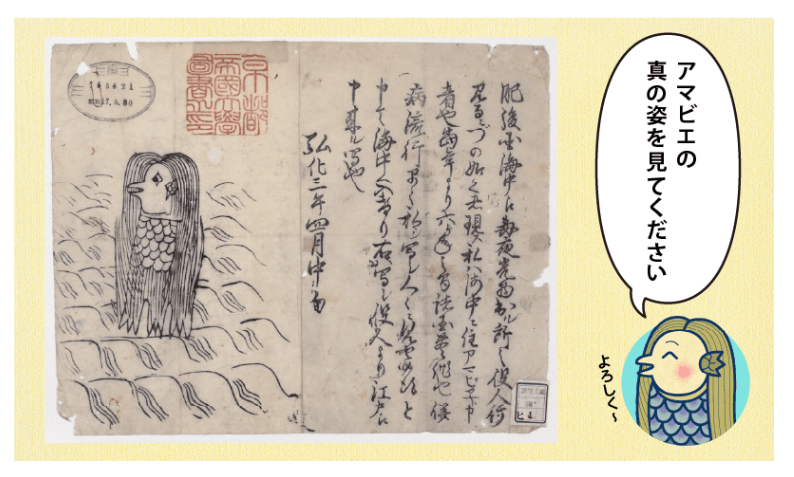 アマビエの
真の姿を見てください
よろしく～
京都
帝國大學
圖書之印
肥後国海中江毎夜光物出ル所之役人行
見るニづの如之者現ス私ハ海中ニ住アマビヱト申
者也当年より六ヶ年之間諸国豊作也併
病流行早々私シ写シ人々ニ見セ候得と
申て海中へ入けり右写シ役人より江戸江
申来ル写也
弘化三年四月中旬